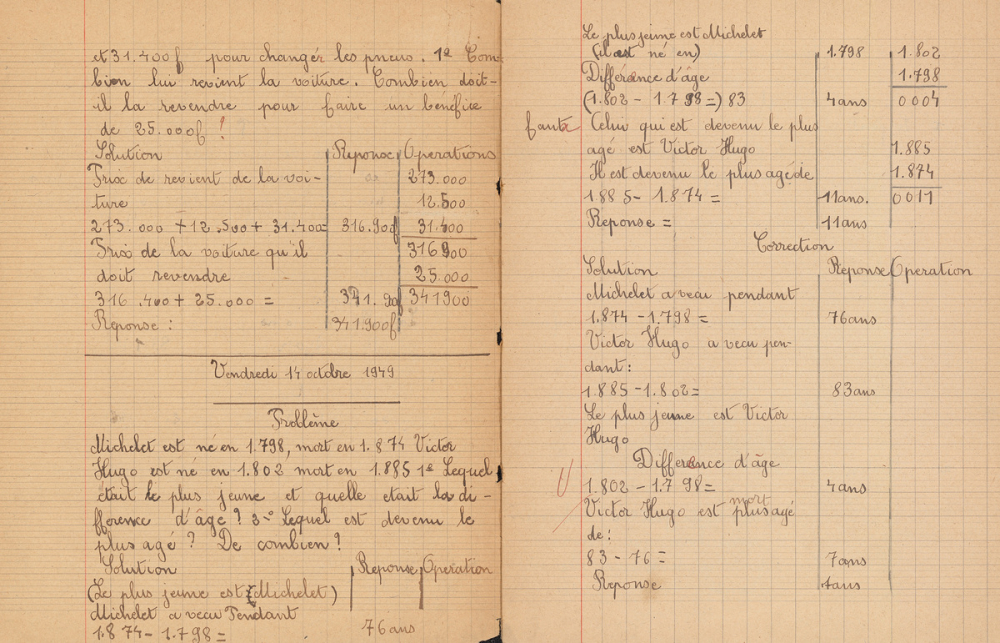 et 31.400f pour changer les pneus. 1º Com
bien lui revient la voiture. Combien doit-
il la revendre pour faire un bénéfice
de 25.000f !
Solution Reponse Operations
Prix de revient de la voi- 273.000
ture 12.500
273.000 + 12.500 + 31.400= 316.900f 31.400
Prix de la voiture qu'il 316900
doit revendre 25.000
316.400 + 25.000 = 341.900f 341900
Reponse : 341.900f
Vendredi 14 octobre 1949
Problème
Michelet est né en 1.798, mort en 1.874 Victor
Hugo est né en 1.802 mort en 1.885 1º Lequel
était le plus jeune et quelle etait la di-
fference d'âge ? 3º Lequel est devenu le
plus agé ? De combien ?
Solution Reponse Operation
(Le plus jeune est (Michelet)
Michelet a vecu Pendant
1.874 - 1.798 = 76 ans
Le plus jeune est Michelet
(il est né en) 1.798 1.802
Différence d'âge 1.798
(1.802 - 1.798 =) 83 4ans 0004
faute Celui qui est devenu le plus
agé est Victor Hugo 1.885
Il est devenu le plus agé de 1.874
1885 - 1.874 = 11ans. 0011
Reponse = 11ans
Correction
Solution Reponse Operation
Michelet a vecu pendant
1.874 - 1.798 = 76ans
Victor Hugo a vecu pen-
dant :
1.885 - 1.802= 83ans
Le plus jeune est Victor
Hugo
Difference d'âge
1.802 - 1.798= 4ans
mort
Victor Hugo est plus agé
de :
83 - 76 = 7ans
Reponse 4ans